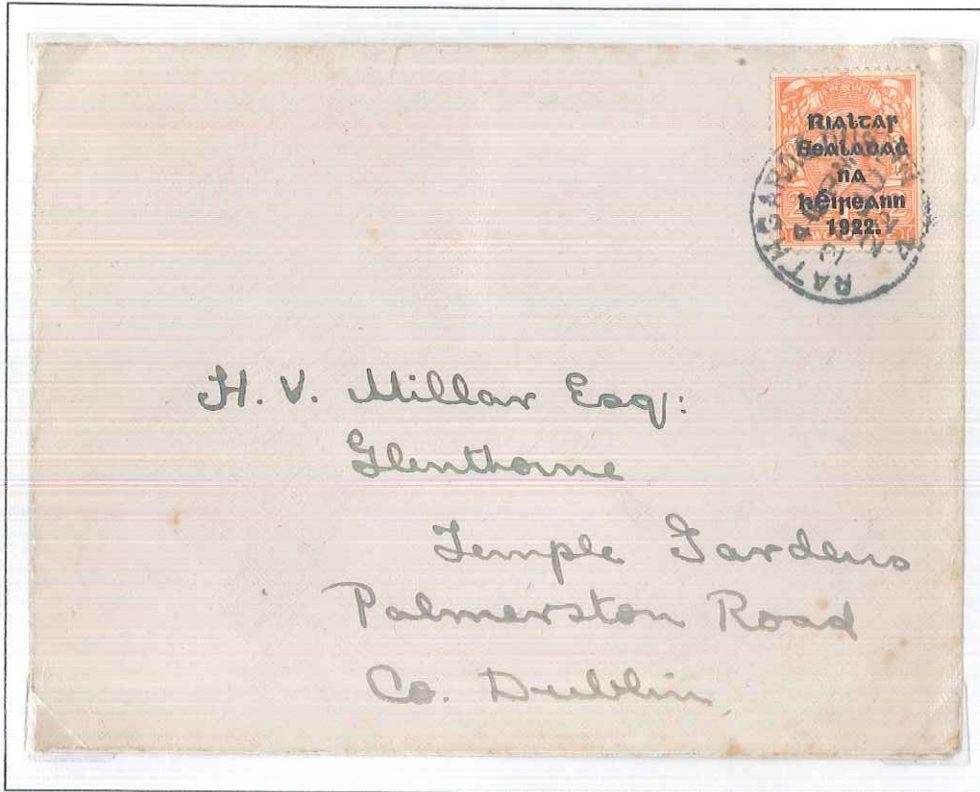 Rialtas
Sealadaċ
na
hÉireann
1922.
RATHGAR
H. V. Millar Esq:
Glenthorne
Temple Gardens
Palmerston Road
Co. Dublin